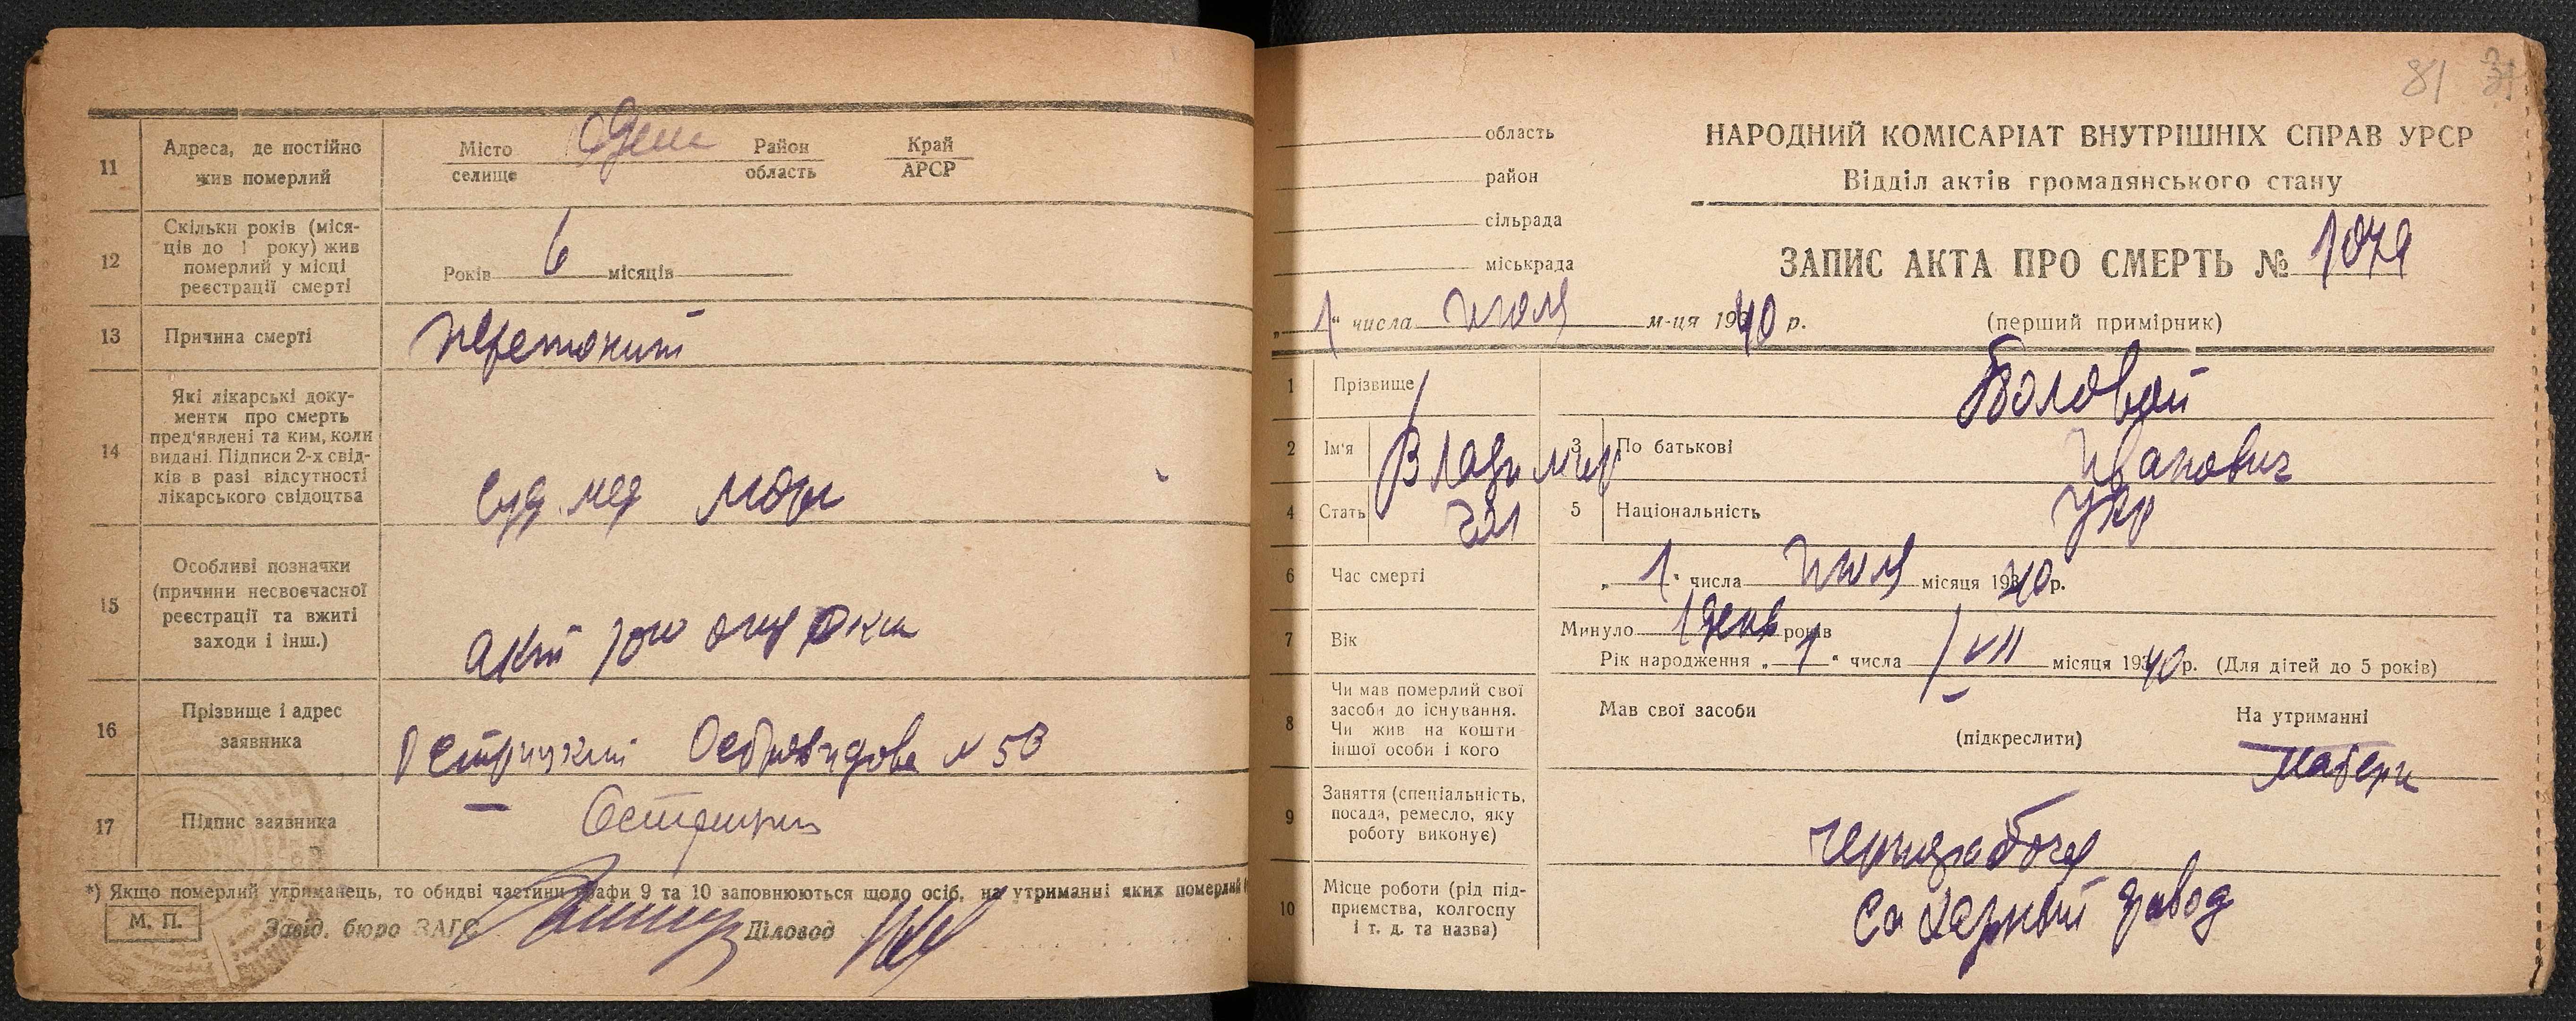 11 Адреса, де постійно
жив померлий
Місто
селище
Район
область
Край
АРСР
12 Скільки років (міся-
ців до 1 року) жив
померлий у місці
реєстрації смерті
Років 6 місяців
13 Причина смерті
14 Які лікарські доку-
менти про смерть
пред'явлені та ким, коли
видані. Підписи 2-х свід-
ків в разі відсутності
лікарського свідоцтва
Суд. мед
15 Особливі позначки
(причини несвоєчасної
реєстрації та вжиті
заходи і інш.)
16 Прізвище і адрес
заявника
№ 53
17 Підпис заявника
*) Якщо померлий утриманець, то обидві частини графи 9 та 10 заповнюються щодо осіб, на утриманні яких померлий
М. П. Завід. бюро ЗАГС Діловод
81
область
район
сільрада
міськрада
НАРОДНИЙ КОМІСАРІАТ ВНУТРІШНІХ СПРАВ УРСР
Відділ актів громадянського стану
ЗАПИС АКТА ПРО СМЕРТЬ № 1079
„1“ числа июля м-ця 1940 р. (перший примірник)
1 Прізвище Боловой
2 Ім'я Владимир 3 По батькові Иванович
4 Стать 5 Національність Укр
6 Час смерті „1“ числа июля місяця 1940 р.
7 Вік Минуло 1 день років
Рік народження „1“ числа VII місяця 1940 р. (Для дітей до 5 років)
8 Чи мав померлий свої
засоби до існування.
Чи жив на кошти
іншої особи і кого
Мав свої засоби (підкреслити) На утриманні
Матери
9 Заняття (спеціальність,
посада, ремесло, яку
роботу виконує)
чернорабоч
10 Місце роботи (рід під-
приємства, колгоспу
і т. д. та назва)
Сахарный завод